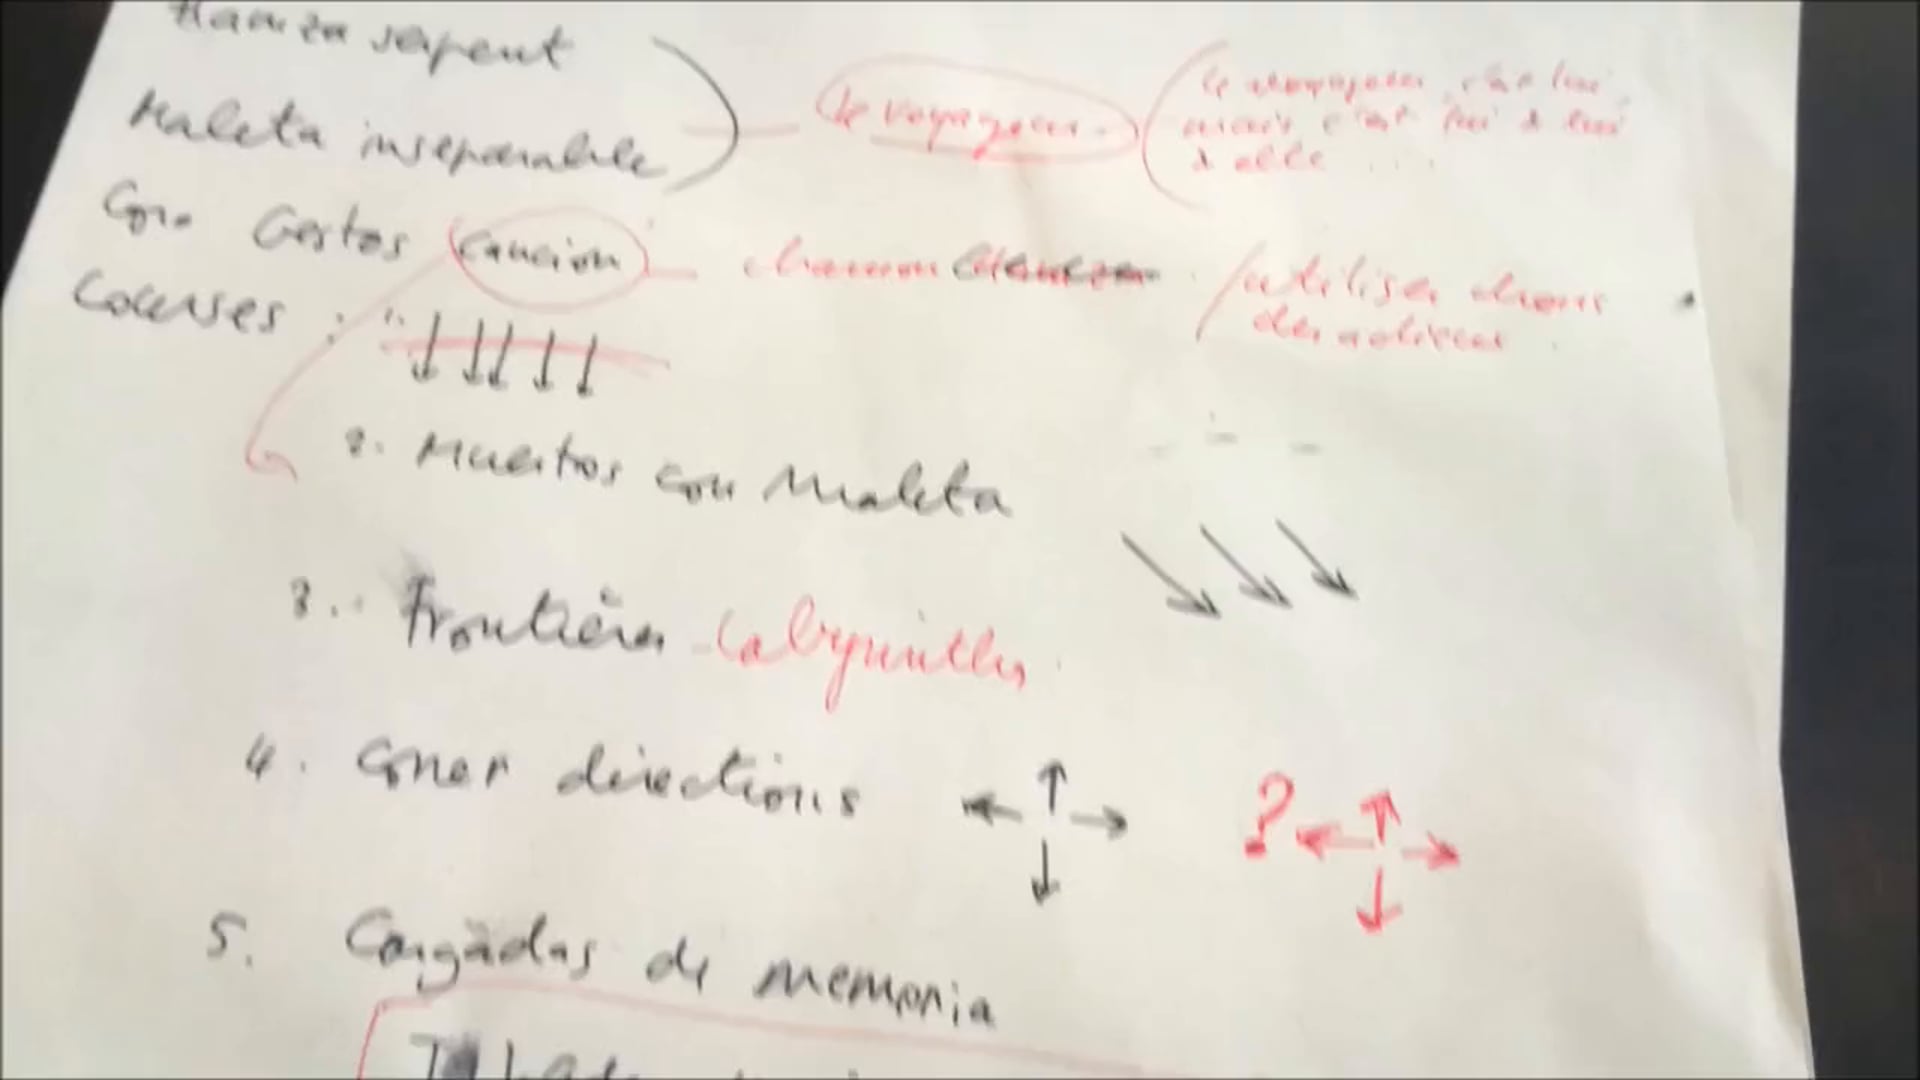 serpent
Maleta inseparable
Con Gestos cancion
Courses :
le voyageur
le voyageur, c'est lui,
mais c'est lui à lui
à elle ...
utiliser dans
2. Muertos con Maleta
3. Frontières Labyinthes
4. Coner directions
?
5. Cargadas de memoria